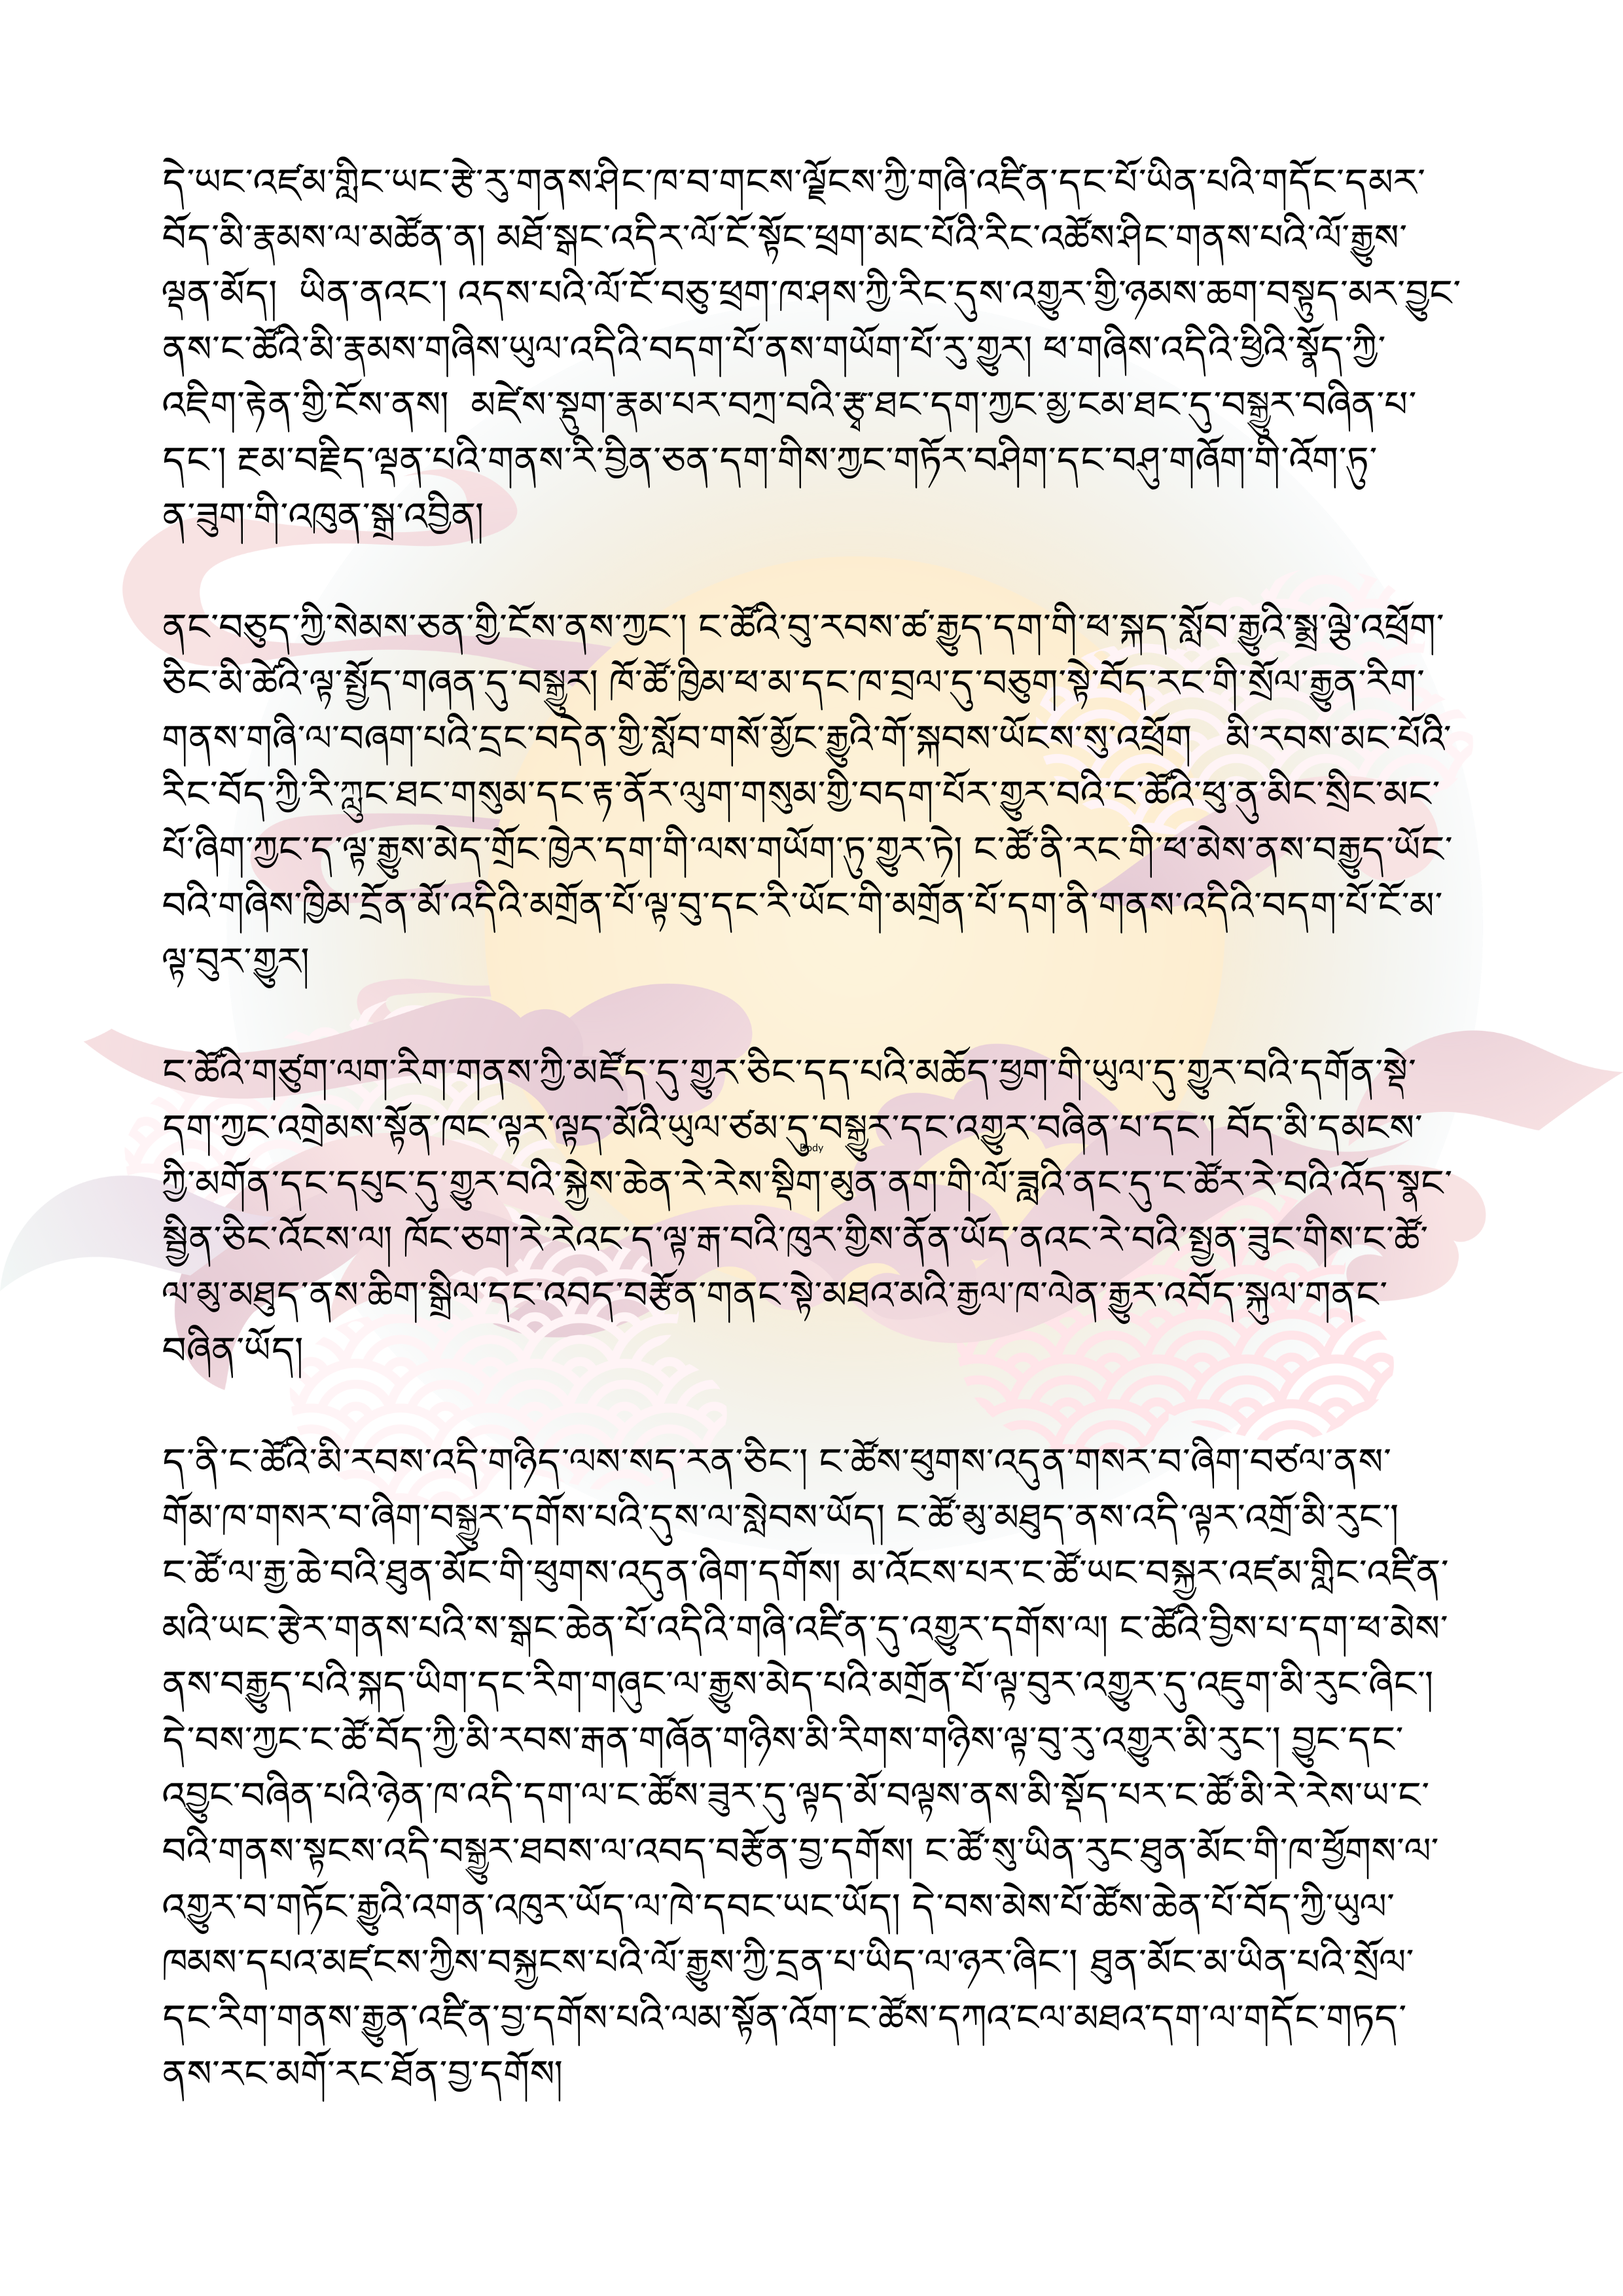 དེ་ཡང་འཛམ་གླིང་ཡང་རྩེ་རུ་གནས་ཤིང་ཁ་བ་གངས་ལྗོངས་ཀྱི་གཞི་འཛིན་དང་པོ་ཡིན་པའི་གདོང་དམར་
བོད་མི་རྣམས་ལ་མཚོན་ན། མཐོ་སྒང་འདིར་ལོ་ངོ་སྟོང་ཕྲག་མང་པོའི་རིང་འཚོས་ཤིང་གནས་པའི་ལོ་རྒྱུས་
ལྡན་མོད།  ཡིན་ནའང་། འདས་པའི་ལོ་ངོ་བཅུ་ཕྲག་ཁ་ཤས་ཀྱི་རིང་དུས་འགྱུར་གྱི་ཉམས་ཆག་བསྟུད་མར་བྱུང་
ནས་ང་ཚོའི་མི་རྣམས་གཞིས་ཡུལ་འདིའི་བདག་པོ་ནས་གཡོག་པོ་རུ་གྱུར། ཕ་གཞིས་འདིའི་ཕྱིའི་སྣོད་ཀྱི་
འཇིག་རྟེན་གྱི་ངོས་ནས།  མཛེས་སྡུག་རྣམ་པར་བཀྲ་བའི་རྩྭ་ཐང་དག་ཀྱང་མྱ་ངམ་ཐང་དུ་བསྒྱུར་བཞིན་པ་
དང་། རྔམ་བརྗིད་ལྡན་པའི་གནས་རི་བྱིན་ཅན་དག་གིས་ཀྱང་གཏོར་བཤིག་དང་བཤུ་གཞོག་གི་འོག་ཏུ་
ན་ཟུག་གི་འཁུན་སྒྲ་འབྱིན།
ནང་བཅུད་ཀྱི་སེམས་ཅན་གྱི་ངོས་ནས་ཀྱང་། ང་ཚོའི་བུ་རབས་ཚ་རྒྱུད་དག་གི་ཕ་སྐད་སློབ་རྒྱུའི་སྨྲ་ལྕེ་འཕྲོག་
ཅིང་མི་ཚེའི་ལྟ་སྤྱོད་གཞན་དུ་བསྒྱུར། ཁོ་ཚོ་ཁྱིམ་ཕ་མ་དང་ཁ་བྲལ་དུ་བཅུག་སྟེ་བོད་རང་གི་སྲོལ་རྒྱུན་རིག་
གནས་གཞི་ལ་བཞག་པའི་དྲང་བདེན་གྱི་སློབ་གསོ་མྱོང་རྒྱུའི་གོ་སྐབས་ཡོངས་སུ་འཕྲོག   མི་རབས་མང་པོའི་
རིང་བོད་ཀྱི་རི་ཀླུང་ཐང་གསུམ་དང་རྟ་ནོར་ལུག་གསུམ་གྱི་བདག་པོར་གྱུར་བའི་ང་ཚོའི་ཕུ་ནུ་མིང་སྲིང་མང་
པོ་ཞིག་ཀྱང་ད་ལྟ་རྒྱུས་མེད་གྲོང་ཁྱེར་དག་གི་ལས་གཡོག་ཏུ་གྱུར་ཏེ། ང་ཚོ་ནི་རང་གི་ཕ་མེས་ནས་བརྒྱུད་ཡོང་
བའི་གཞིས་ཁྱིམ་དྲོན་མོ་འདིའི་མགྲོན་པོ་ལྟ་བུ་དང་རི་ཡོང་གི་མགྲོན་པོ་དག་ནི་གནས་འདིའི་བདག་པོ་ངོ་མ་
ལྟ་བུར་གྱུར།
ང་ཚོའི་གཙུག་ལག་རིག་གནས་ཀྱི་མཛོད་དུ་གྱུར་ཅིང་དད་པའི་མཆོད་ཕྱག་གི་ཡུལ་དུ་གྱུར་བའི་དགོན་སྡེ་
དག་ཀྱང་འགྲེམས་སྟོན་ཁང་ལྟར་ལྟད་མོའི་ཡུལ་ཙམ་དུ་བསྒྱུར་དང་འགྱུར་བཞིན་པ་དང་། བོད་མི་དམངས་
Body
ཀྱི་མགོན་དང་དཔུང་དུ་གྱུར་བའི་སྐྱེས་ཆེན་རེ་རེས་སྡིག་མུན་ནག་གི་ལོ་ཟླའི་ནང་དུ་ང་ཚོར་རེ་བའི་འོད་སྣང་
སྦྱིན་ཅིང་འོངས་ལ། ཁོང་ཅག་རེ་རེའང་ད་ལྟ་རྒ་བའི་ཁུར་གྱིས་ནོན་ཡོད་ནའང་རེ་བའི་སྤྱན་ཟུང་གིས་ང་ཚོ་
ལ་མུ་མཐུད་ནས་ཆིག་སྒྲིལ་དང་འབད་བརྩོན་གནང་སྟེ་མཐའ་མའི་རྒྱལ་ཁ་ལེན་རྒྱུར་འབོད་སྐུལ་གནང་
བཞིན་ཡོད།
ད་ནི་ང་ཚོའི་མི་རབས་འདི་གཉིད་ལས་སད་རན་ཅིང་། ང་ཚོས་ཕུགས་འདུན་གསར་བ་ཞིག་བཙལ་ནས་
གོམ་ཁ་གསར་བ་ཞིག་བསྒྱུར་དགོས་པའི་དུས་ལ་སླེབས་ཡོད། ང་ཚོ་མུ་མཐུད་ནས་འདི་ལྟར་འགྲོ་མི་རུང་།
ང་ཚོ་ལ་རྒྱ་ཆེ་བའི་ཐུན་མོང་གི་ཕུགས་འདུན་ཞིག་དགོས། མ་འོངས་པར་ང་ཚོ་ཡང་བསྐྱར་འཛམ་གླིང་འཛིན་
མའི་ཡང་རྩེར་གནས་པའི་ས་སྒང་ཆེན་པོ་འདིའི་གཞི་འཛིན་དུ་འགྱུར་དགོས་ལ། ང་ཚོའི་བྱིས་པ་དག་ཕ་མེས་
ནས་བརྒྱུད་པའི་སྐད་ཡིག་དང་རིག་གཞུང་ལ་རྒྱུས་མེད་པའི་མགྲོན་པོ་ལྟ་བུར་འགྱུར་དུ་འཇུག་མི་རུང་ཞིང་།
དེ་བས་ཀྱང་ང་ཚོ་བོད་ཀྱི་མི་རབས་རྒན་གཞོན་གཉིས་མི་རིགས་གཉིས་ལྟ་བུ་རུ་འགྱུར་མི་རུང་། བྱུང་དང་
འབྱུང་བཞིན་པའི་ཉེན་ཁ་འདི་དག་ལ་ང་ཚོས་ཟུར་དུ་ལྟད་མོ་བལྟས་ནས་མི་སྡོད་པར་ང་ཚོ་མི་རེ་རེས་ཡ་ང་
བའི་གནས་སྟངས་འདི་བསྒྱུར་ཐབས་ལ་འབད་བརྩོན་བྱ་དགོས། ང་ཚོ་སུ་ཡིན་རུང་ཐུན་མོང་གི་ཁ་ཕྱོགས་ལ་
འགྱུར་བ་གཏོང་རྒྱུའི་འགན་འཁུར་ཡོད་ལ་ཁེ་དབང་ཡང་ཡོད། དེ་བས་མེས་པོ་ཚོས་ཆེན་པོ་བོད་ཀྱི་ཡུལ་
ཁམས་དཔའ་མཛངས་ཀྱིས་བསྐྱངས་པའི་ལོ་རྒྱུས་ཀྱི་དྲན་པ་ཡིད་ལ་ཉར་ཞིང་། ཐུན་མོང་མ་ཡིན་པའི་སྲོལ་
དང་རིག་གནས་རྒྱུན་འཛིན་བྱ་དགོས་པའི་ལམ་སྟོན་འོག་ང་ཚོས་དཀའ་ངལ་མཐའ་དག་ལ་གདོང་གཏད་
ནས་རང་མགོ་རང་ཐོན་བྱ་དགོས།